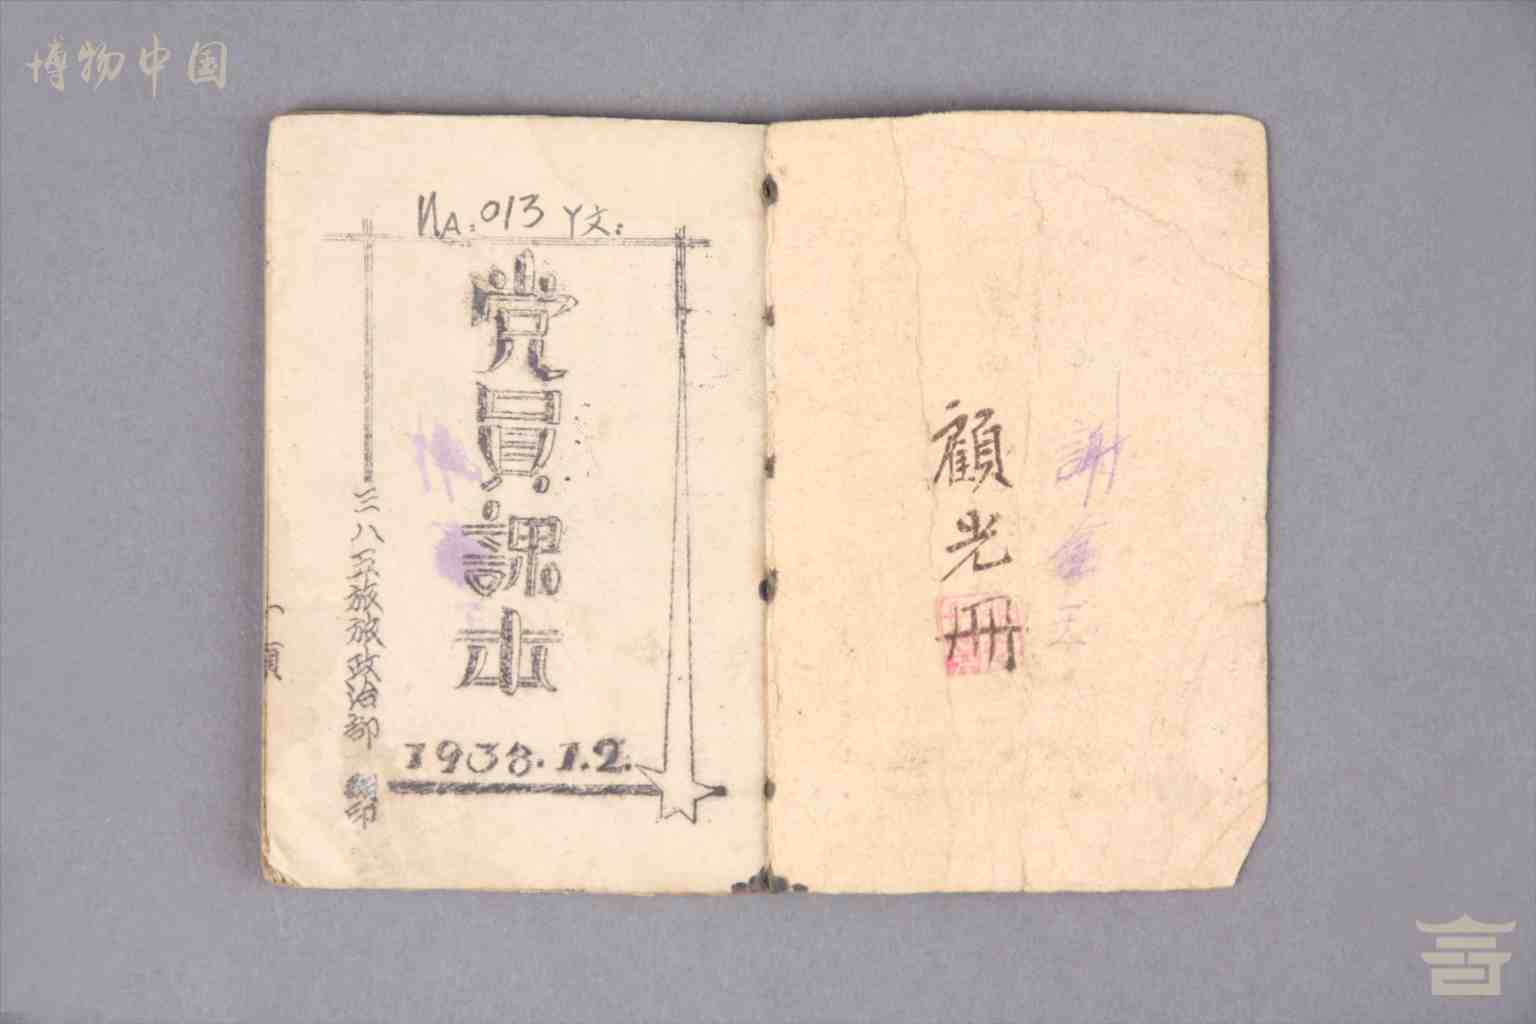 博物中国
NA:013 丫文:
党員課本
三八五旅旅政治部 編印
1938.1.2.
顧光冊
謝金玉